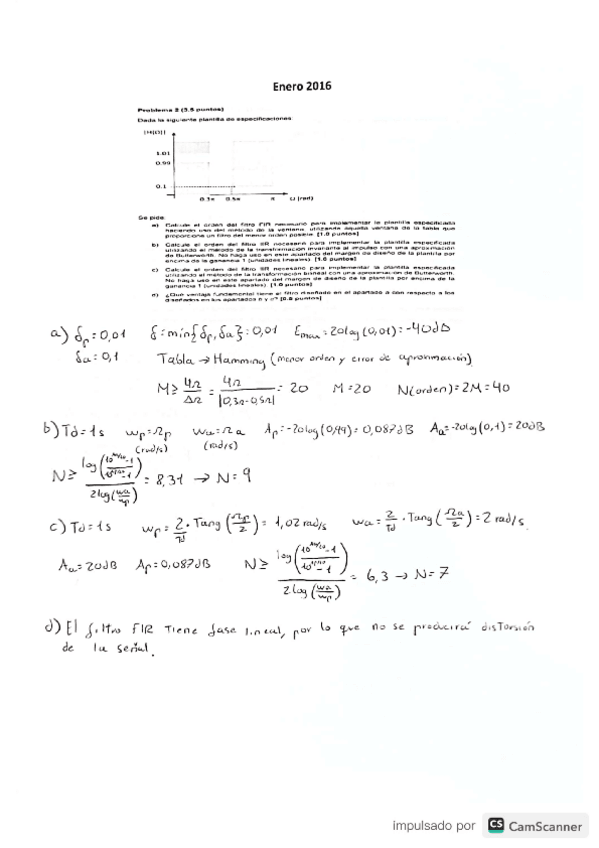 Enero 2016
Problema 2 (3.5 puntos)
Dada la siguiente plantilla de especificaciones:
|H(Ω)|
1.01
0.99
0.1
0.3π 0.5π π Ω (rad)
Se pide:
a) Calcule el orden del filtro FIR necesario para implementar la plantilla especificada
haciendo uso del método de la ventana, utilizando aquella ventana de la tabla que
proporcione un filtro del menor orden posible. [1.0 puntos]
b) Calcule el orden del filtro IIR necesario para implementar la plantilla especificada
utilizando el método de la transformación invariante al impulso con una aproximación
de Butterworth. No haga uso en este apartado del margen de diseño de la plantilla por
encima de la ganancia 1 (unidades lineales). [1.0 puntos]
c) Calcule el orden del filtro IIR necesario para implementar la plantilla especificada
utilizando el método de la transformación bilineal con una aproximación de Butterworth.
No haga uso en este apartado del margen de diseño de la plantilla por encima de la
ganancia 1 (unidades lineales). [1.0 puntos]
d) ¿Qué ventaja fundamental tiene el filtro diseñado en el apartado a con respecto a los
diseñados en los apartados b y c? [0.5 puntos]
a) δp=0,01 δ=min{δp,δa}=0,01 Emax=20log(0,01)=-40dB
δa=0,1 Tabla → Hamming (menor orden y error de aproximación)
M≥ 4π/ΔΩ = 4π/|0,3π-0,5π| = 20 M=20 N(orden)=2M=40
b) Td=1s wp=Ωp wa=Ωa Ap=-20log(0,99)=0,087dB Aa=-20log(0,1)=20dB
(rad/s) (rad/s)
N≥ log((10^Aa/10-1)/(10^Ap/10-1)) / 2log(wa/wp) = 8,31 → N=9
c) Td=1s wp=2/Td·Tang(Ωp/2)=1,02 rad/s wa=2/Td·Tang(Ωa/2)=2 rad/s.
Aa=20dB Ap=0,087dB N≥ log((10^Aa/10-1)/(10^Ap/10-1)) / 2log(wa/wp) = 6,3 → N=7
d) El filtro FIR tiene fase lineal, por lo que no se producirá distorsión
de la señal.
impulsado por CS CamScanner